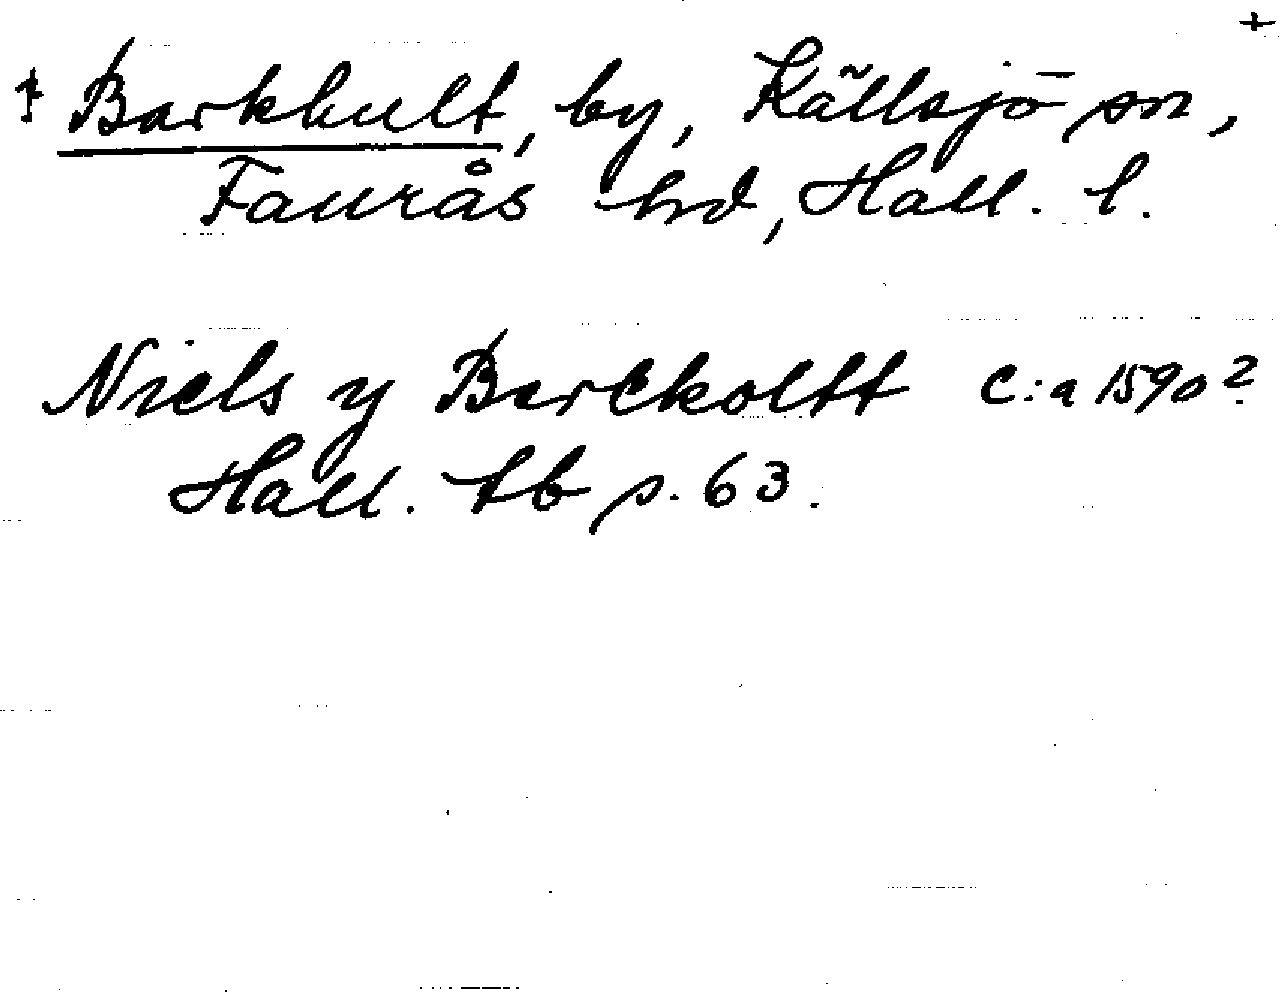 +
‡ Barkhult, by, Källsjö sn,
Faurås hd, Hall. l.
Niels y Barckoltt c:a 1590?
Hall. tb s. 63.